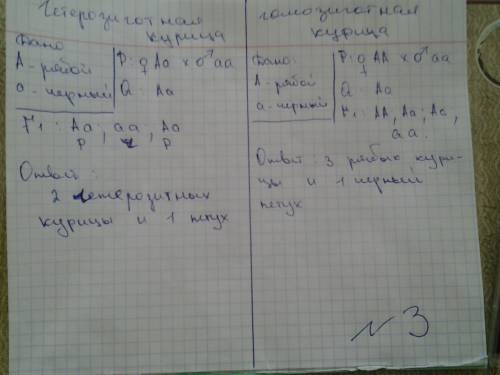 Гетерозиготная
курица
Дано:
А - рябой
а - черный
Р: ♀ Аа х ♂ аа
G: Аа
F1: Аа, аа, Аа
р ч р
Ответ:
2 гетерозитных
курицы и 1 петух
гомозиготная
курица
Дано:
А - рябой
а - черный
Р: ♀ АА х ♂ аа
G: Аа
F1: АА, Аа, Аа,
аа.
Ответ: 3 рябых кури-
цы и 1 черный
петух
№3